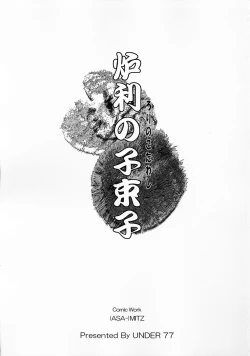 炉利の子束子
Comic Work
IASA-IMITZ
Presented By UNDER 77